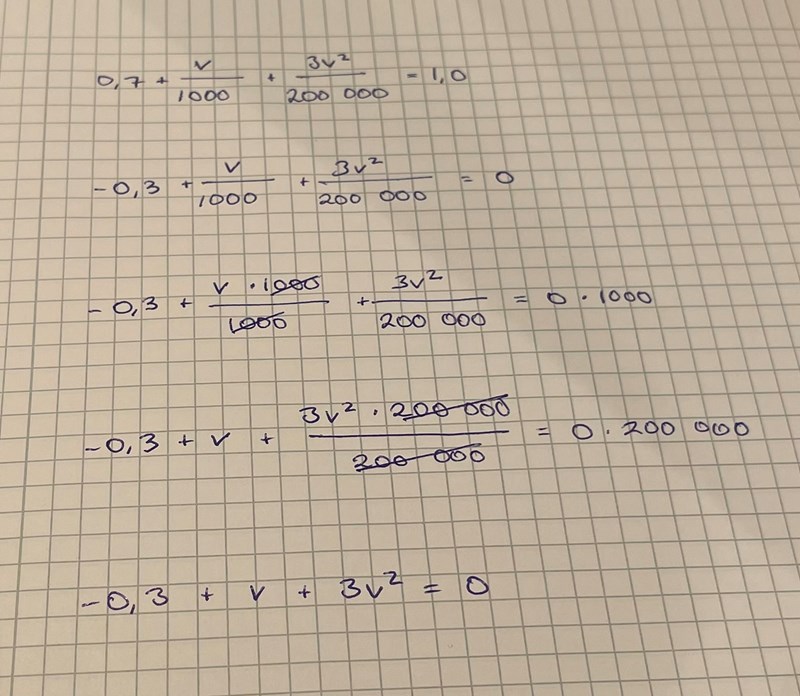 0,7 + v/1000 + 3v²/200 000 = 1,0
-0,3 + v/1000 + 3v²/200 000 = 0
-0,3 + v · 1000/1000 + 3v²/200 000 = 0 · 1000
-0,3 + v + 3v² · 200 000/200 000 = 0 · 200 000
-0,3 + v + 3v² = 0